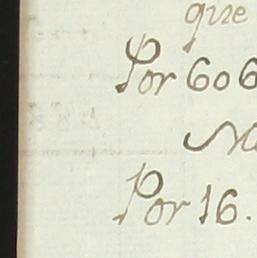 que
Por 606
Por 16.